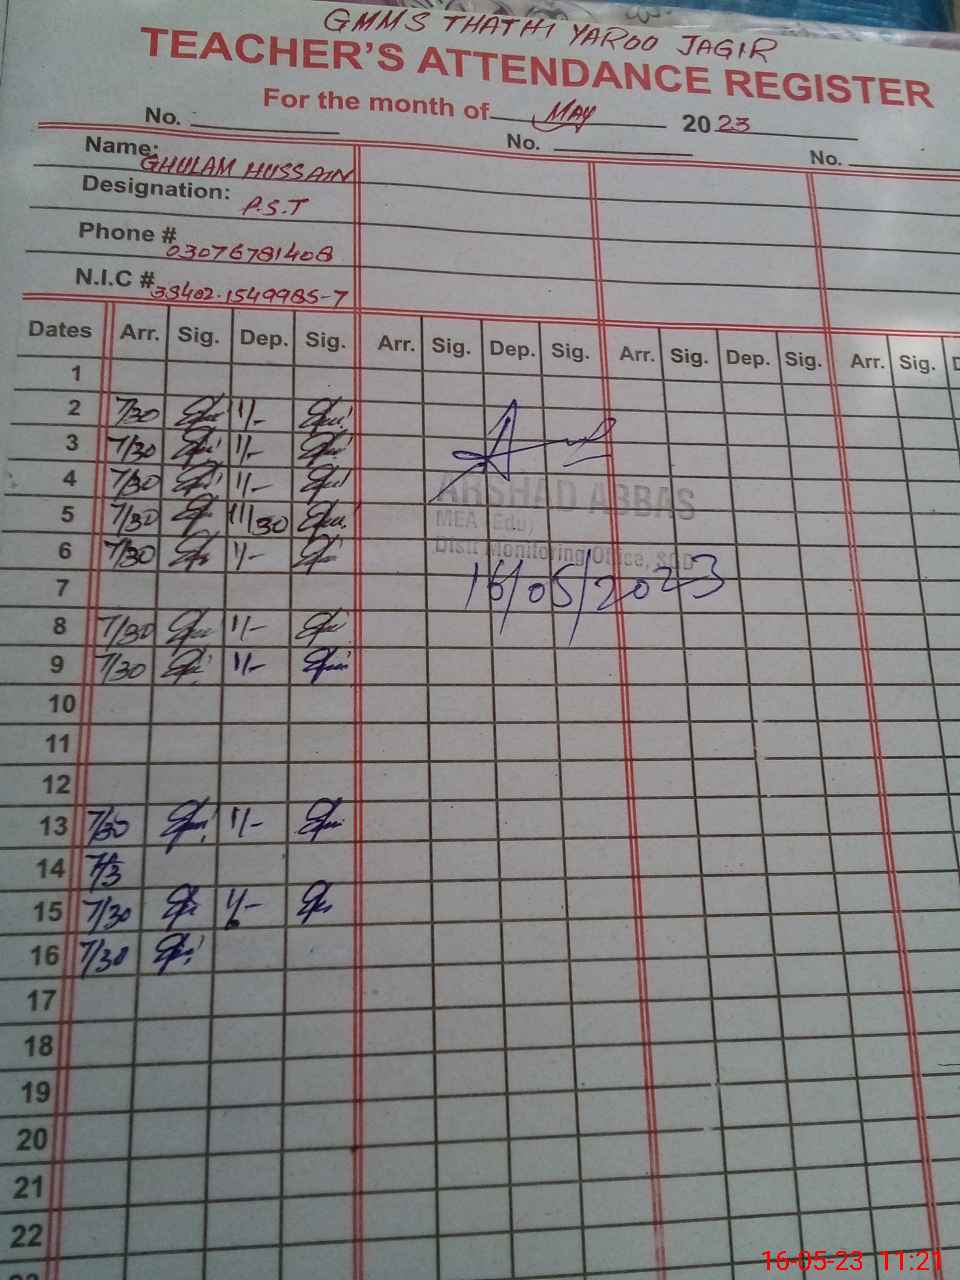 GMMS THATHI YAROO JAGIR
TEACHER'S ATTENDANCE REGISTER
For the month of MAY 2023
No. No. No.
Name: GHULAM HUSSAIN
Designation: P.S.T
Phone # 03076781408
N.I.C # 38402-1549985-7
Dates Arr. Sig. Dep. Sig. Arr. Sig. Dep. Sig. Arr. Sig. Dep. Sig. Arr. Sig. D
1
2 7/30 1/-
3 7/30 1/-
4 7/30 1/-
ARSHAD ABBAS
5 7/30 11/30
MEA (Edu)
6 7/30 1/-
Distt Monitoring Office, SGD
7
16/05/2023
8 7/30 1/-
9 7/30 1/-
10
11
12
13 7/30 1/-
14 7/3
15 7/30 1/-
16 7/30
17
18
19
20
21
22
16-05-23 11:21